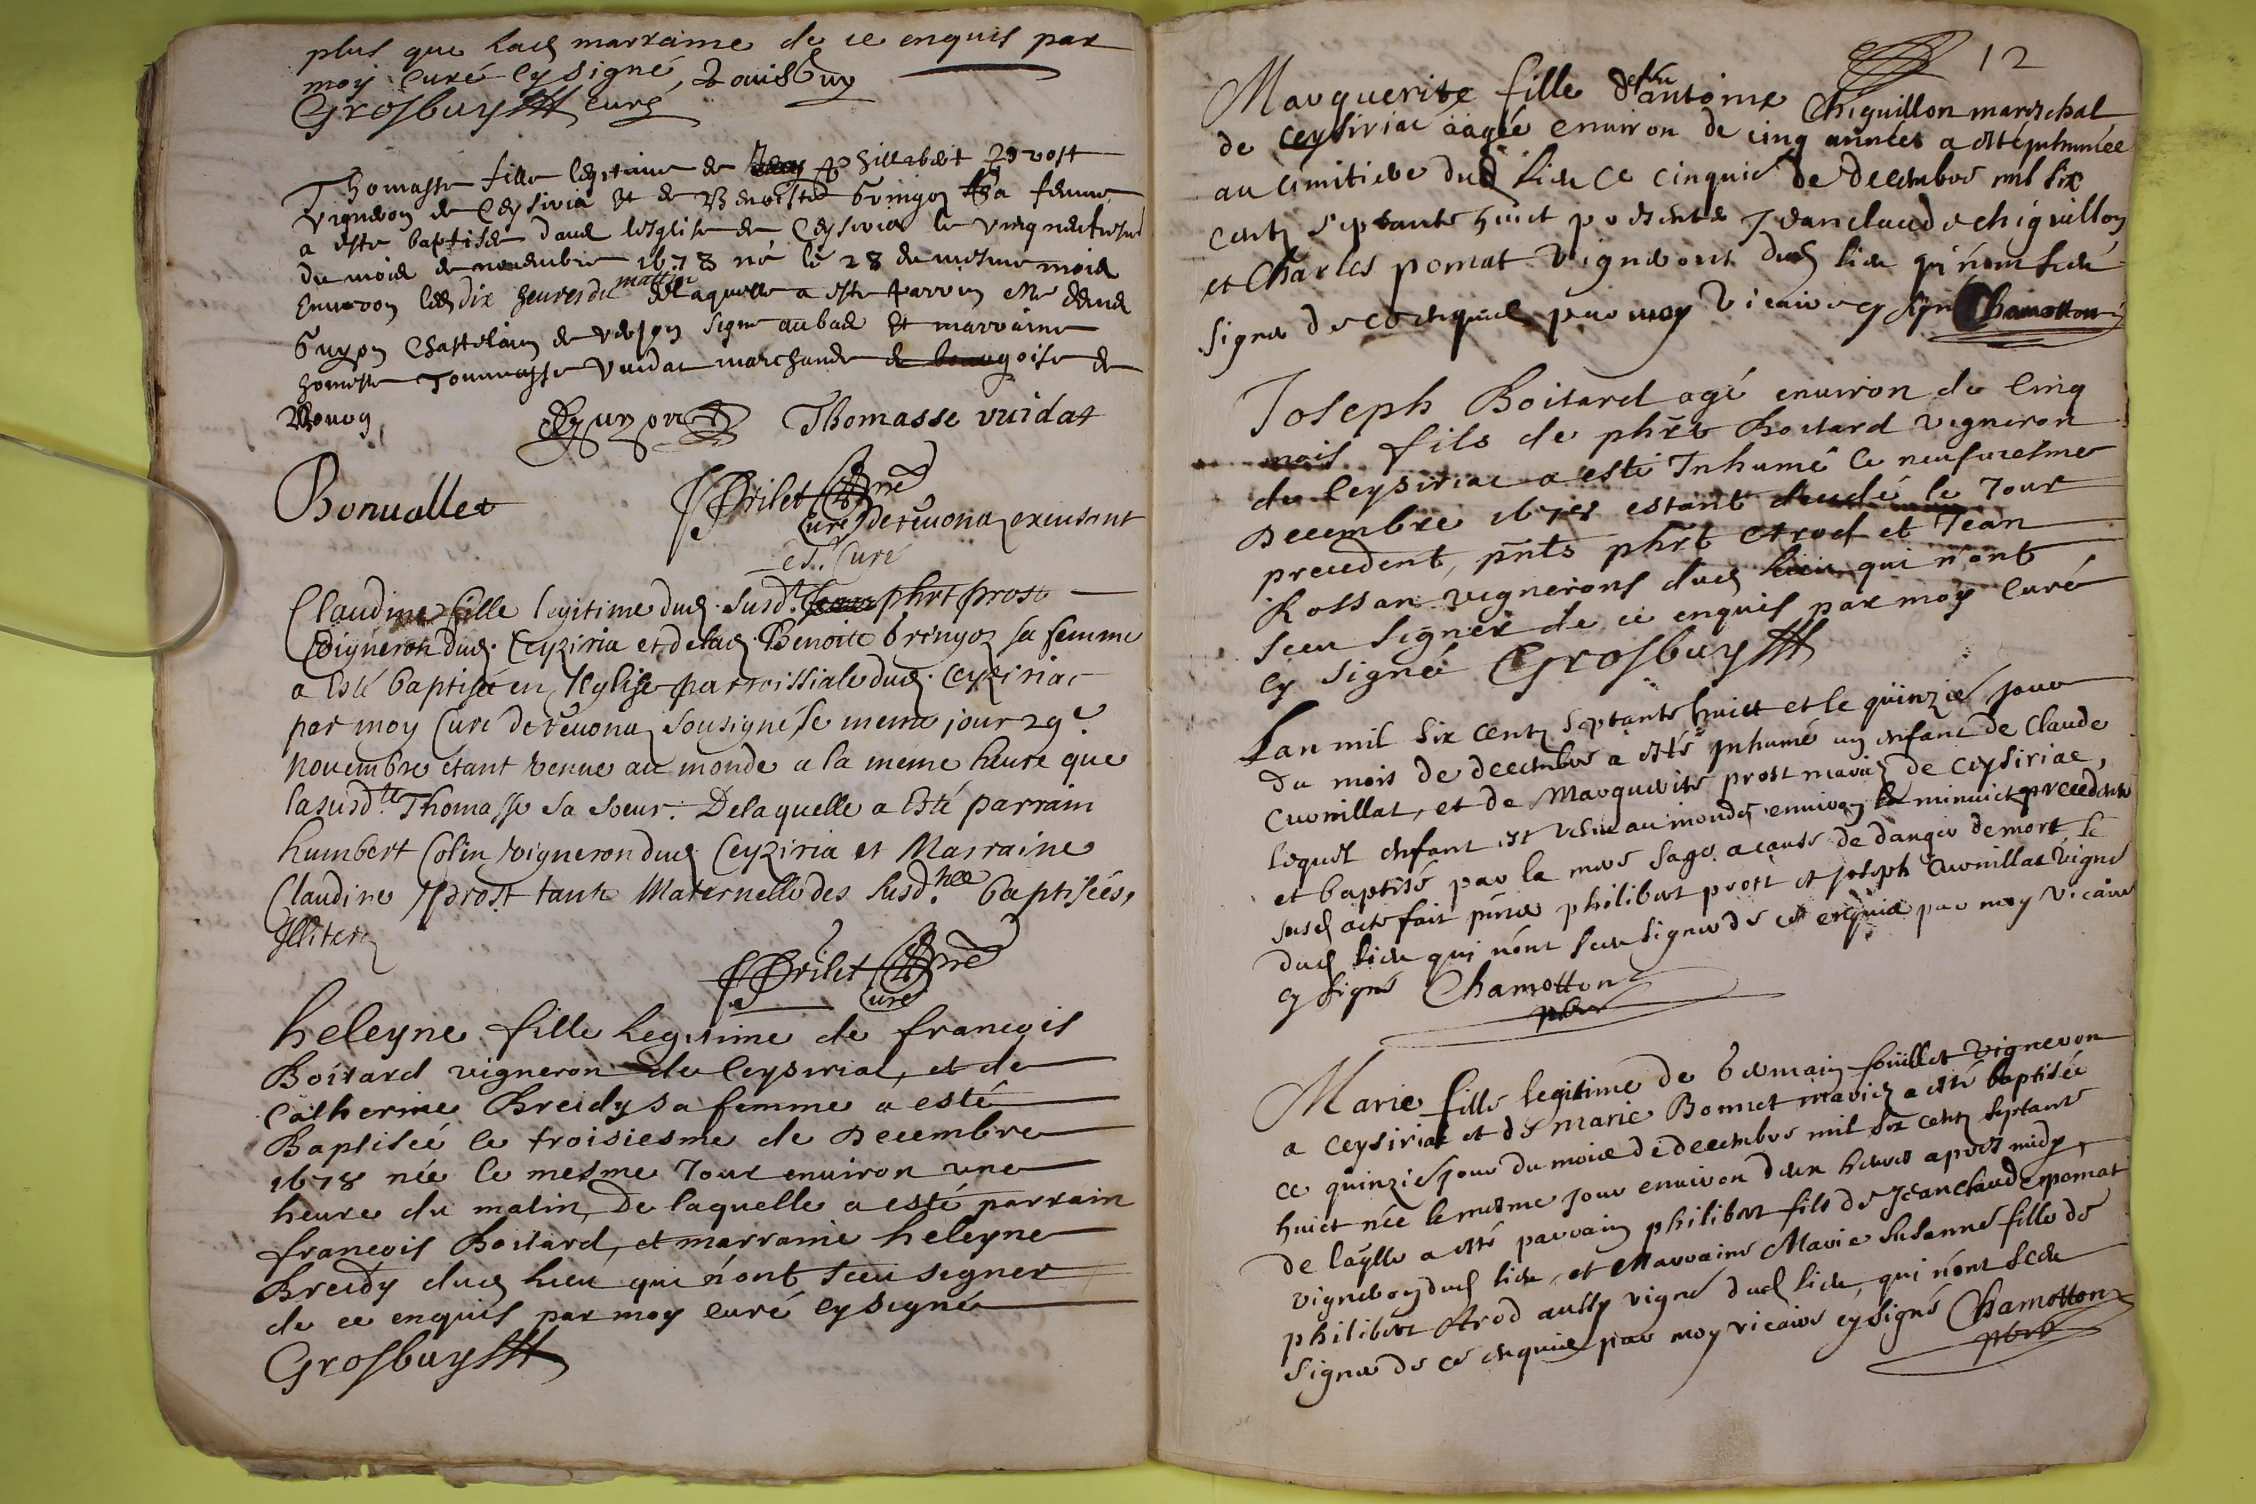 plus que lad marraine de ce enquis par
moy curé cy signé, Louis Guy
Grosbuy curé
Thomasse fille legitime de phillibert Provost
vigneron de Ceysiria et de Benoitte bringon sa femme
a este baptisée dans l'esglise de Ceysiria le vingneufvesme
du mois de novembre 1678 né le 28 du mesme mois
environ les dix heures du mattin de laquelle a este parrin
Guyon Chastelain de verjon signe aubas et marraine
honneste Tommasse Vuidat marchande bourgoise de
Bourg
Guyon Thomasse vuidat
Bonuallet Prilet
Curé de reuona
et. Curé
Claudine fille legitime dud. susd.t phrt prost
vigneron dud. Ceyziria et delad. Benoite bringon sa femme
a Esté baptisée en l'Eglise parroissiale dud. Ceyziriac
par moy Curé de reuona sousigné, le meme jour 29e.
novembre etant venue au monde a la meme heure que
la susd.tte Thomasse sa soeur. De laquelle a Esté parrain
humbert Colin vigneron dud. Ceyziria et Marraine
Claudine prost tante Maternelle des susd. baptisées,
Illiterez
Prilet
Curé
heleyne fille Legitime de françois
Boitard vigneron de Ceysiriac, et de
Catherine Breidy sa femme a esté
Baptisée le troisiesme de Decembre
1678 née le mesme Jour environ une
heure du matin, De laquelle a esté parrain
françois Boitard, et marraine heleyne
Breidy dud lieu qui n'ont sceu signer
de ce enquis par moy curé cy signé
Grosbuy
12
Marguerite fille defeu antoine Chiquillon mareschal
de Ceysiriac aagée environ de cinq années a esté inhumée
au cimitiere dud lieu ce cinquie de decembre mil six
cent septante huict presents Jeanclaude chiquillon
et Charles pomat vignerons dud lieu qui n'ont sceu
signer de ce enquis par moy Vicaire cy signé Chamotton
Joseph Boitard agé environ de Cinq
mois fils de phrt Boitard vigneron
de Ceysiriac a esté Inhumé le neufuiesme
Decembre 1678 estant decedé le Jour
precedent, pnts phrt Atrod et Jean
Rossan vignerons dud lieu qui n'ont
sceu signer de ce enquis par moy curé
cy signé Grosbuy
Lan mil six cent septante huict et le quinzie jour
du mois de decembre a esté inhumé un enfant de Claude
Cuonillat, et de Marguerite prost mariez de ceysiriac,
lequel enfant est venu au monde environ la minuict precedente
et baptisé par la mere sage a cause de danger de mort, le
susd acte fait pnce philibert prost et joseph Cuonillat vigne
dud lieu qui n'ont sceu signer de ce enquis par moy vicaire
cy signé Chamotton
pbre
Marie fille legitime de Germain fouillet vigneron
a Ceysiriac et de marie Bonnet mariez a esté baptisée
ce quinzie jour du mois de decembre mil six cent septante
huict née le mesme jour environ deux heures apres midy,
de laqlle a esté parrain philibert fils de Jeanclaude pomat
vigneron dud lieu, et Marraine Marie Susanne fille de
philibert Atrod aussy vigne dud lieu, qui n'ont sceu
signer de ce enquis par moy vicaire cy signé Chamotton
pbre